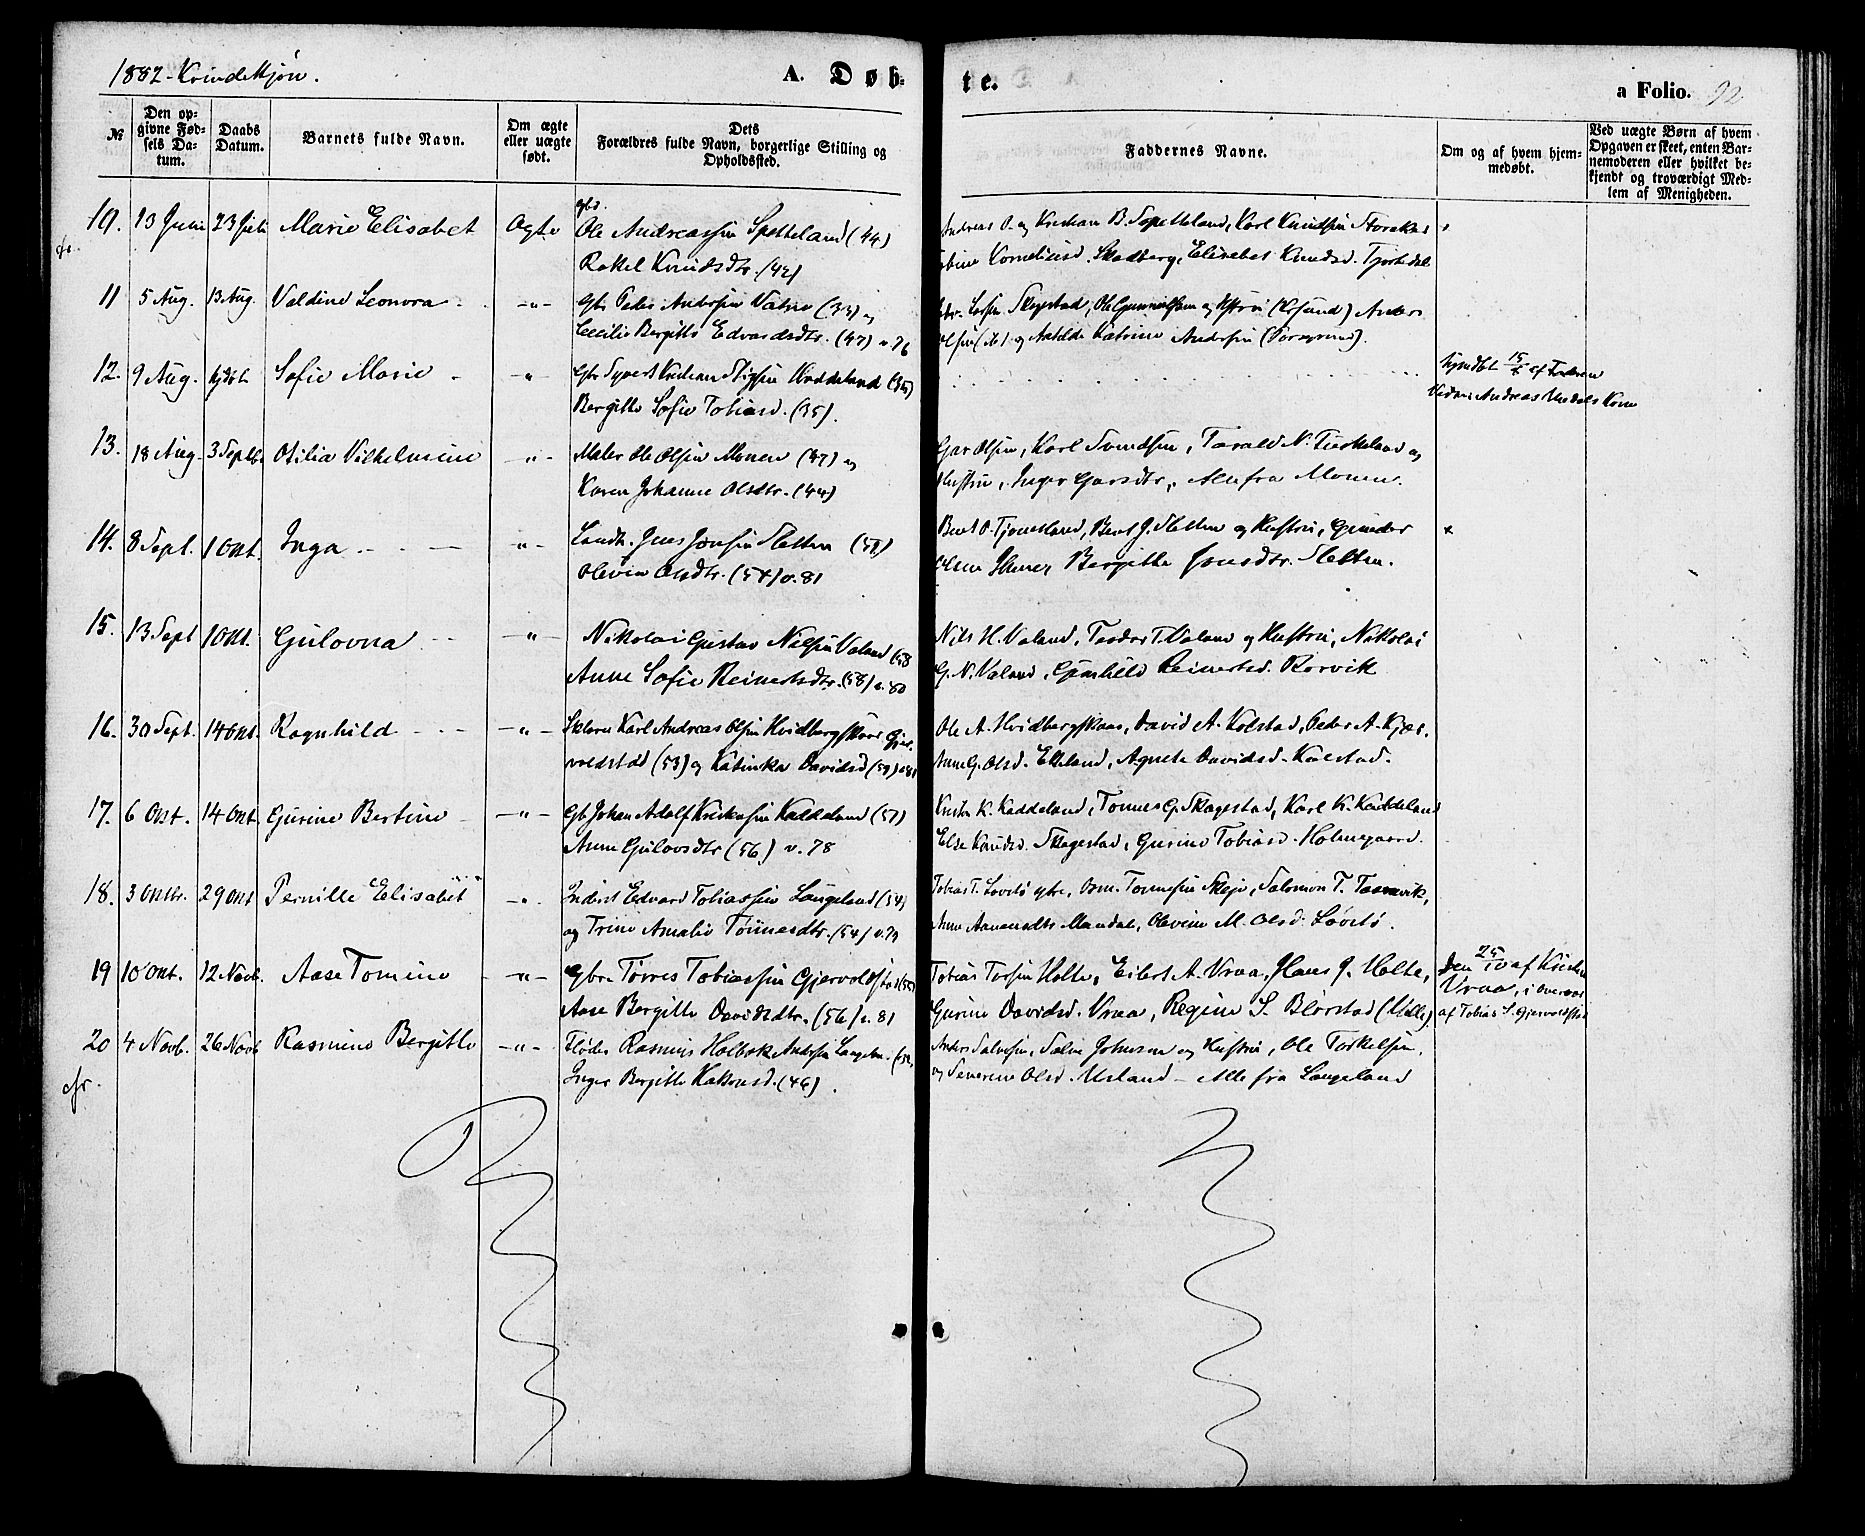 1882 - Kvindekjøn.
A. Døb-
te.
a Folio. 92
№
Den op-
givne Fød-
sels Da-
tum.
Daabs
Datum.
Barnets fulde Navn.
Om ægte
eller uægte
født.
Dets
Forældres fulde Navn, borgerlige Stilling og
Opholdssted.
Faddernes Navne.
Om og af hvem hjem-
medøbt.
Ved uægte Børn af hvem
Opgaven er skeet, enten Bar-
nemoderen eller hvilket be-
kjendt og troværdigt Med-
lem af Menigheden.
10. 13 Juni 23 Juli Marie Elisabet Ægte
Ole Andreassen Spetteland (44)
Rakel Knudsdtr. (42)
Andreas O. og Kristian B. Spetteland, Karl Knudsen
Kornelius d. Skadberg, Elisabet Knudsd.
11 5 Aug. 13 Aug. Valdine Leonora - -"-
Gbr Peder Andersen Vatne (33) og
Cecilie Bergitte Edvardsdtr. (47) v. 76
Skagestad, Ole Gunnulfsen og Hustru Anders
og Matilde Katrine Andersen
12. 9 Aug. hjdbt. Sofie Marie - -"-
Gbr Syvert Kristian Stigsen Haddeland (35)
Bergitte Sofie Tobiasd. (35).
hjmdbt 15/8 af Faderen
Vidne: Andreas
13. 18 Aug. 3 Septbr. Otilia Vilhelmine -"-
Maler Ole Olsen Monen (47) og
Karen Johanne Olsdtr. (44)
Olsen, Karl Svendsen, Tarald N. og
Hustru, Inger Garsdtr, Alle fra Monen.
14. 8 Sept. 1 Okt. Inga - - - -"-
Jens Jensen Sletten (58)
Olevine Olsdtr. (54) v. 81
Bent O. Tjomsland, Bent J. Sletten og Hustru, Gunder
Olsen Bergitte Jensdtr. Sletten.
15. 13 Sept 1 Okt. Gulovna - - -"-
Nikolai Gustav Nilsen Valand (58
Anne Sofie Reinertsdtr. (58) v. 80
Nils H. Valand, Teodor T. Valand og Hustru, Nikolai
G. N. Valand, Gunhild Reinertsd. Rorvik
16. 30 Sept. 14 Okt. Ragnhild - - - -"-
Karl Andreas Olsen Hvidbergskaar Gjer-
voldstad (53) og Katinka Davidsd (59) v. 81
Ole A. Hvidbergskaar, David A. Kolstad, Peder A. Kjær,
Anne G. Olsd. Ekeland, Agnete Davidsd. Kolstad.
17. 6 Okt. 14 Okt. Gurine Bertine - -"-
Gb Johan Adolf Kristensen Kaddeland (57)
Anne Gulovsdtr (56) v. 78
K. Kaddeland, Tønnes G. Skagestad, Karl K. Kaddeland
Else Knudsd. Skagestad, Gurine Tobiasd. Holmegaard.
18. 3 Oktbr. 29 Okt Pernille Elisabet -"-
Inderst Edvard Tobiassen Langeland (54)
og Trine Amalie Tønnesdtr. (54) v. 79
Tobias T. Løvstø gbr, Osm. Tønnesen Skeje, Salomon T.
Anne Mandal, Olevine M. Olsd. Løvstø.
19 10 Okt. 12 Novb. Aase Tomine -"-
Gbr. Tørres Tobiassen Gjervoldstad (55)
Aase Bergitte Davidsdtr. (56) v. 81
Tobias Torsen Holte, Eilert A. Vraa, Hans J. Holte,
Gurine Davidsd. Vraa, Regine S. Blørstad (Holle).
Den 25/10 af Kristen
Vraa, i overvær
af Tobias S. Gjervoldstad
20 4 Novb. 26 Novb Rasmine Bergitte -"-
Fløder Rasmus Holbek Andersen
Inger Bergitte (46).
Anders Salvesen, Salve Johnsen og Hustru, Ole Torkelsen,
og Severine Olsd. Usland - Alle fra Langeland
cfr.